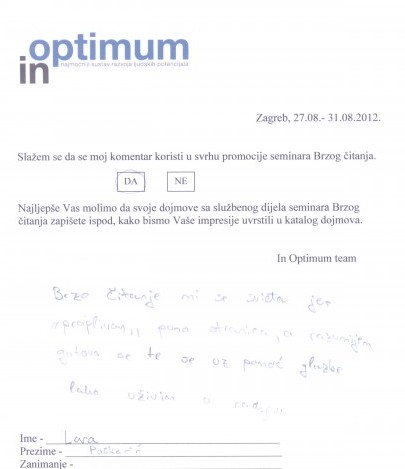 in optimum
najmoćniji sustav razvoja ljudskih potencijala
Zagreb, 27.08.- 31.08.2012.
Slažem se da se moj komentar koristi u svrhu promocije seminara Brzog čitanja.
DA NE
Najljepše Vas molimo da svoje dojmove sa službenog dijela seminara Brzog
čitanja zapišete ispod, kako bismo Vaše impresije uvrstili u katalog dojmova.
In Optimum team
Brzo čitanje mi se sviđa jer
puno stranica, a razumijem
gotovo se te se uz pomoć glazbe
lako uživim u
Ime - Lara
Prezime -
Zanimanje -